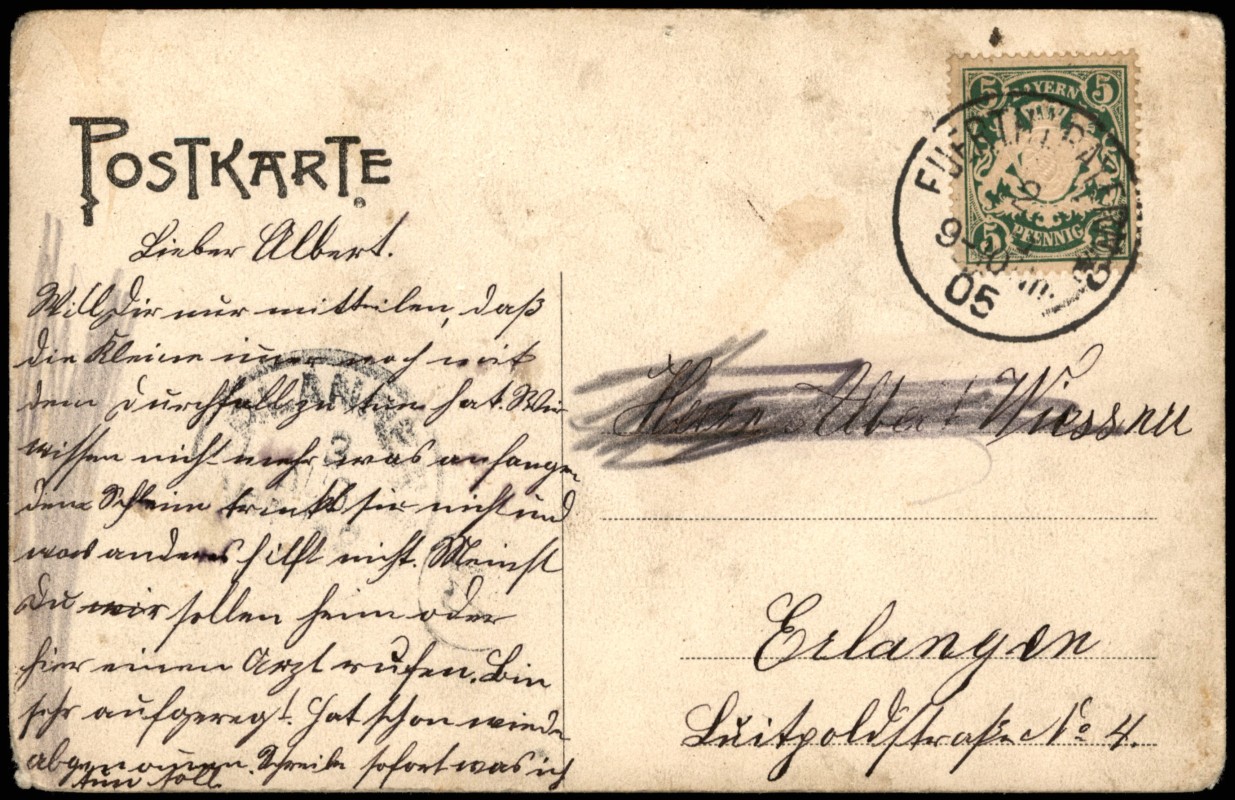 POSTKARTE
Lieber Albert.
Will Dir nur mitteilen, daß
die Kleine immer noch mit
dem Durchfall zu tun hat. Wir
wissen nicht mehr was anfangen
denn Schleim trinkt sie nicht und
was anderes hilft nicht. Meinst
Du wir sollen heim oder
hier einen Arzt rufen. Bin
sehr aufgeregt. Hat schon wieder
abgenommen. Schreibe sofort was ich
tun soll.
5 BAYERN 5
5 PFENNIG
FUERTH
9-10
05
Herrn Albert Wiessner
Erlangen
Luitpoldstraße No 4.